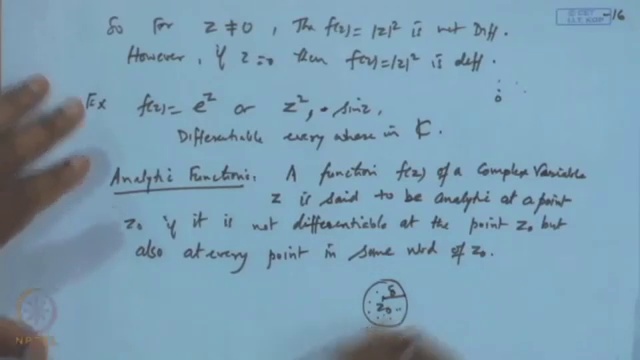 So For z ≠ 0, The f(z) = |z|² is not Diff.
However, if z = 0 then f(z) = |z|² is diff.
0
Ex f(z) = e^z or z², sin z,
Differentiable every where in ₵.
Analytic Function: A function f(z) of a complex variable
z is said to be analytic at a point
z₀ if it is not differentiable at the point z₀ but
also at every point in some nbd of z₀.
δ
z₀
-16
NPTEL